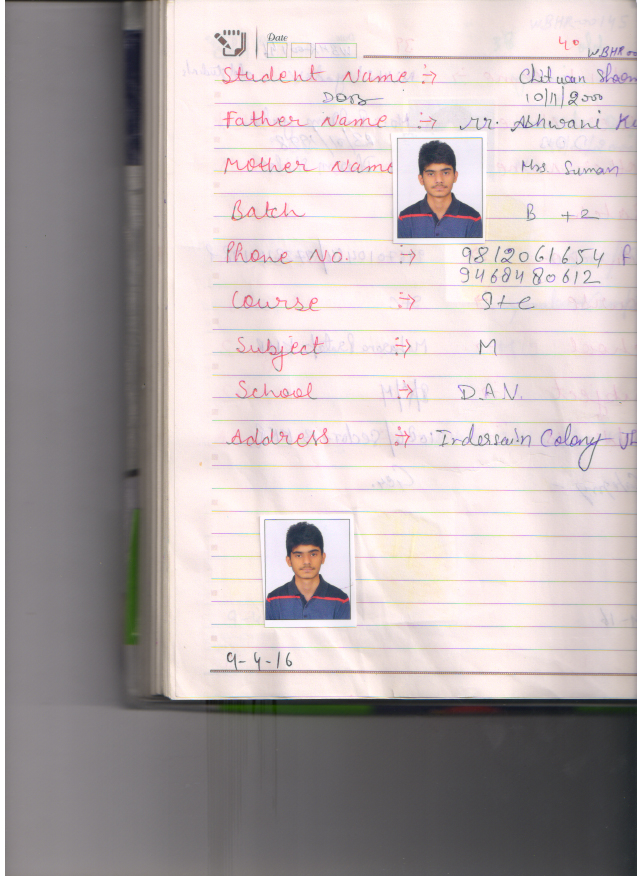 Date
40
WBHR00
Student Name :->
DOB 10/11/2000
Father Name :-> Mr. Ashwani
Mother Name Mrs. Suman
Batch B +2
Phone No. :-> 9812061654
9468480612
Course :->
Subject :-> M
School :-> D.A.V.
Address :-> Colony
9-4-16